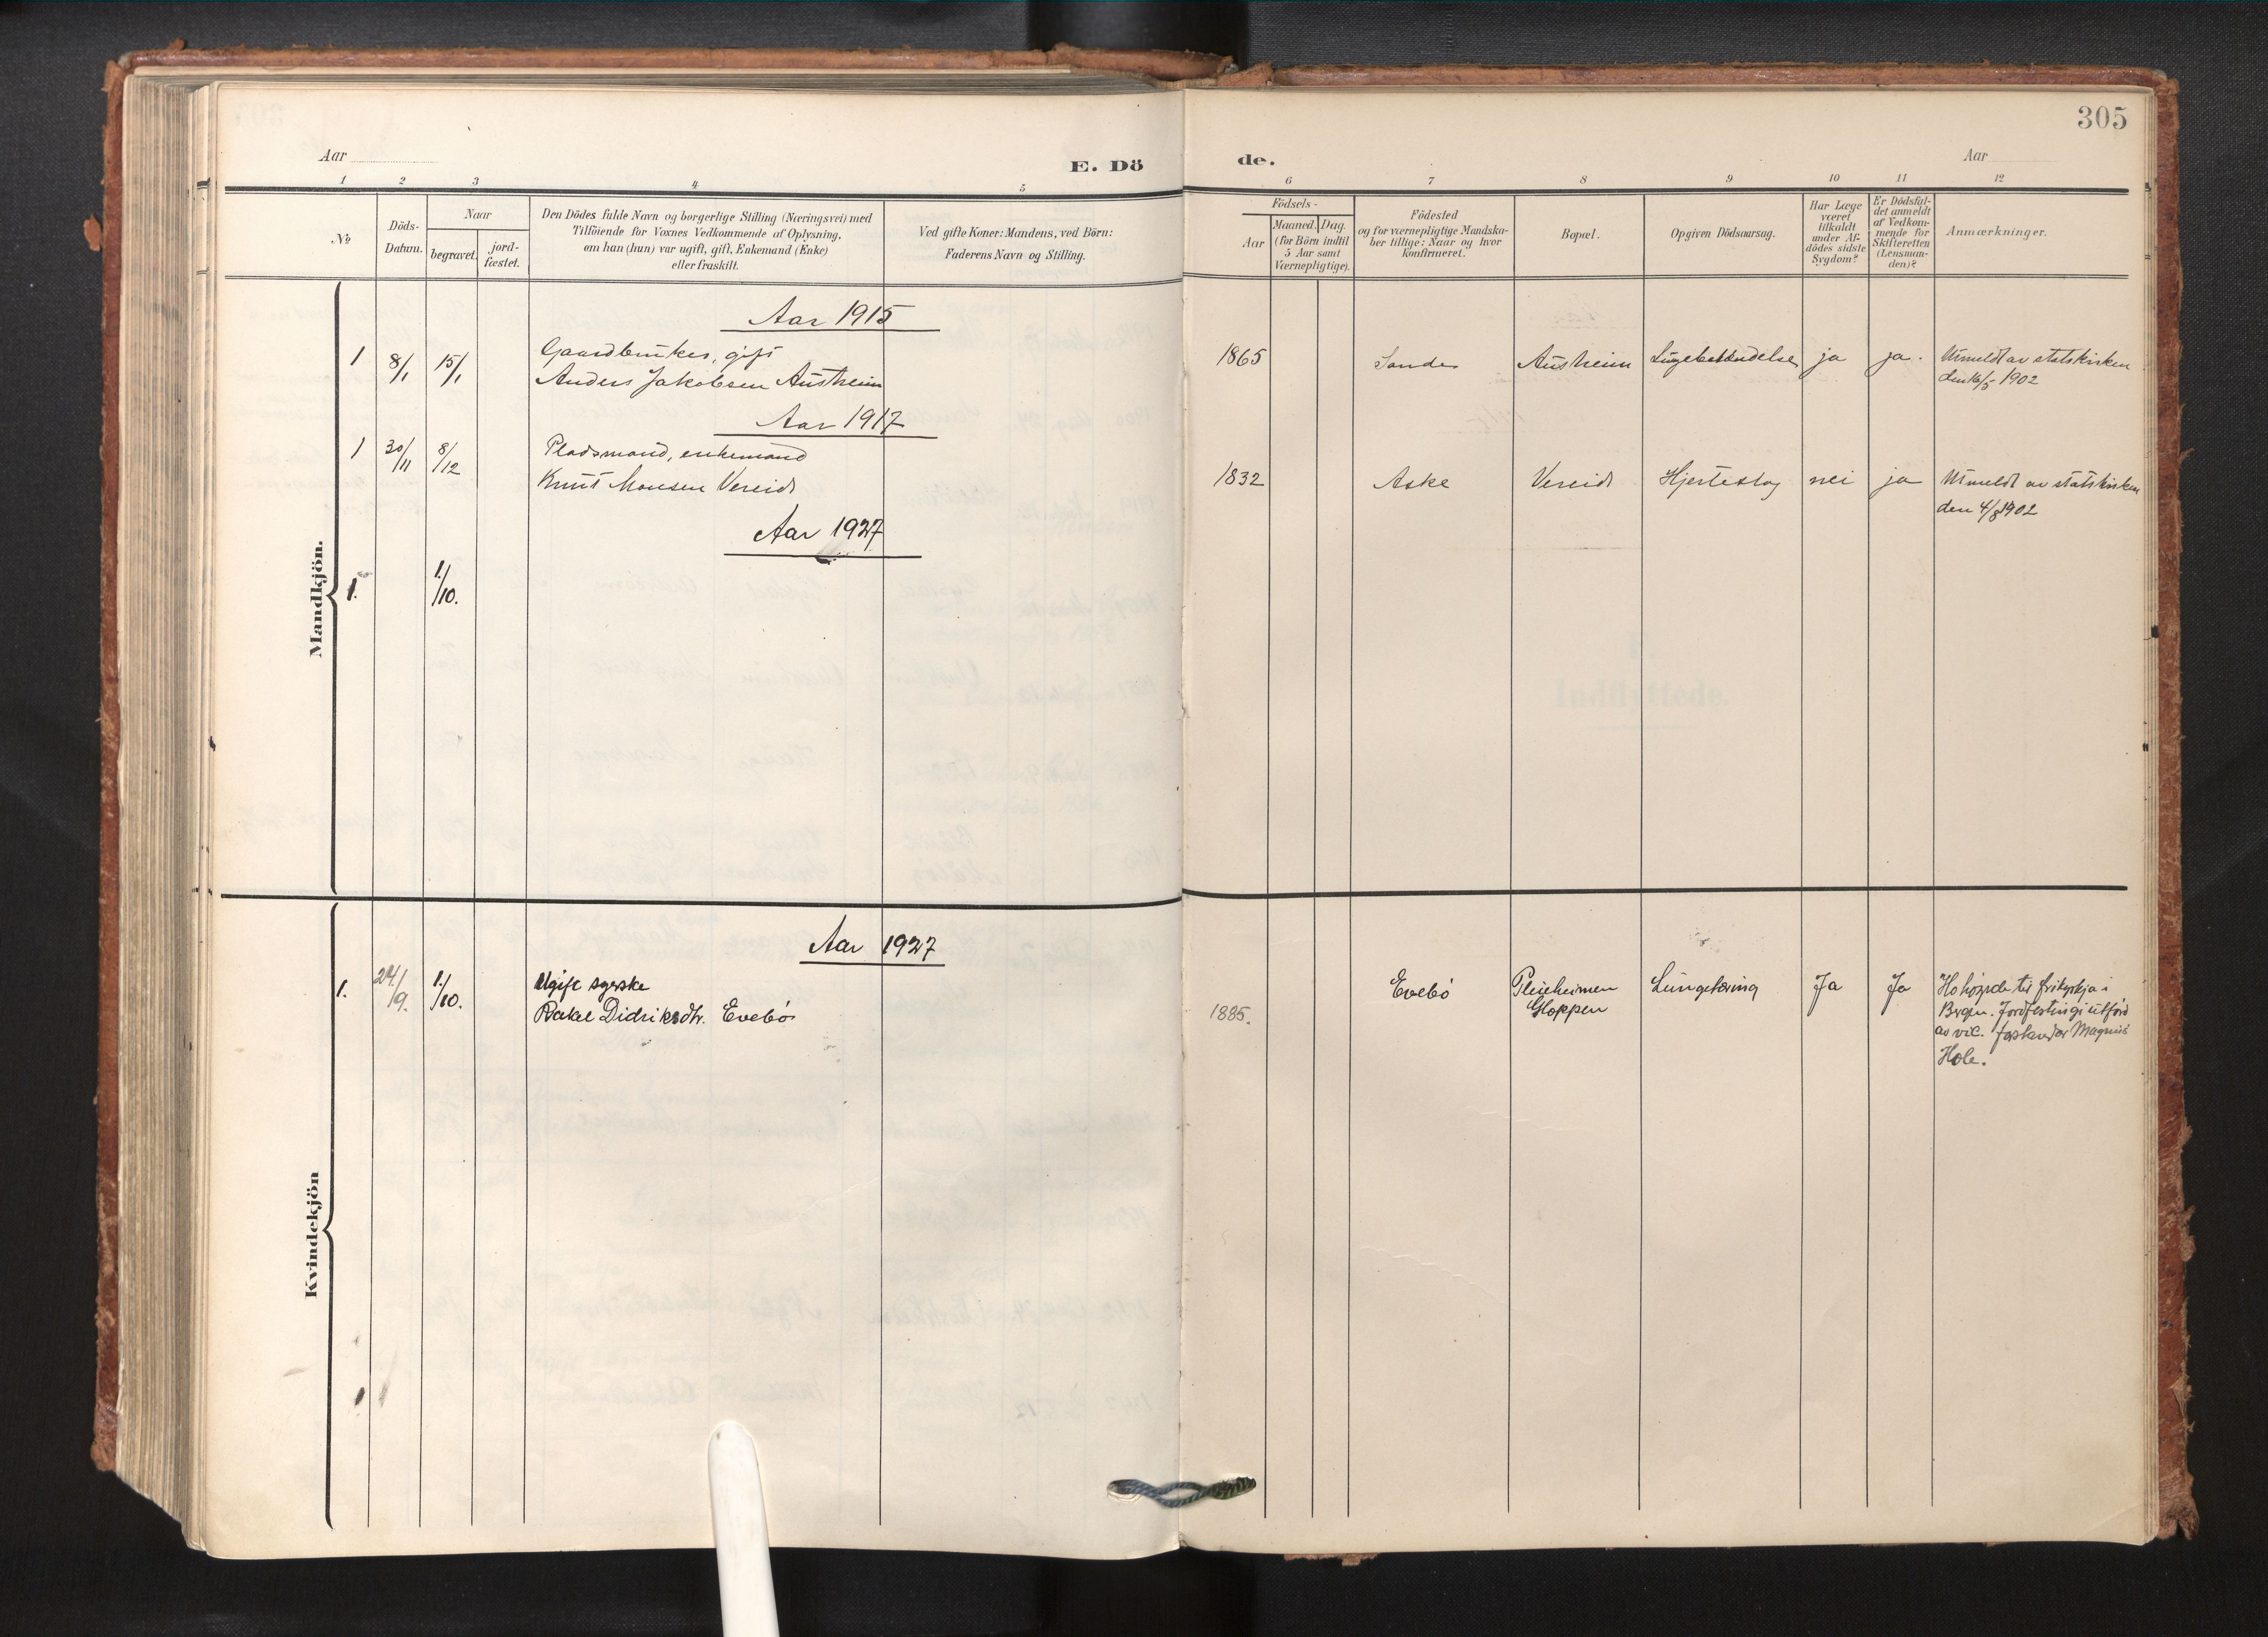 305
Aar
E. Dö
de.
Aar
1 2 3 4 5 6 7 8 9 10 11 12
No
Döds-
Datum.
Naar
begravet.
jord-
fæstet.
Den Dödes fulde Navn og borgerlige Stilling (Næringsvei) med
Tilföiende for Voxnes Vedkommende af Oplysning,
om han (hun) var ugift, gift, Enkemand (Enke)
eller fraskilt.
Ved gifte Koner: Mandens, ved Börn:
Faderens Navn og Stilling.
Födsels-
Aar
Maaned. Dag.
(for Börn indtil
5 Aar samt
Værnepligtige).
Födested
og for værnepligtige Mandska-
ber tillige: Naar og hvor
konfirmeret.
Bopæl.
Opgiven Dödsaarsag.
Har Læge
været
tilkaldt
under Af-
dödes sidste
Sygdom?
Er Dödsfal-
det anmeldt
af Vedkom-
mende for
Skifteretten
(Lensman-
den)?
Anmærkninger.
Mandkjön.
Aar 1915
1 8/1 15/1 Gaardbruker, gift
Anders Jakobsen Austreim
1865 Sande Austreim Lungebetændelse ja ja. Utmeldt av statskirken
den 16/5 1902
Aar 1917
1 30/11 8/12 Pladsmand, enkemand
Knut Monsen Vereide
1832 Aske Vereide Hjerteslag nei ja Utmeldt av statskirken
den 4/8 1902
Aar 1927
1. 1./10.
Kvindekjön
Aar 1927
1. 24/9. 1./10. Ugift syerske
Rakel Didriksdtr. Evebö
1885. Evebö Pleieheimen
Gloppen
Lungetæring Ja Ja Ho høyrde til frikyrkja i
Bergen. Jordfesting utförd
av vic. forstandar Magnus
Hole.